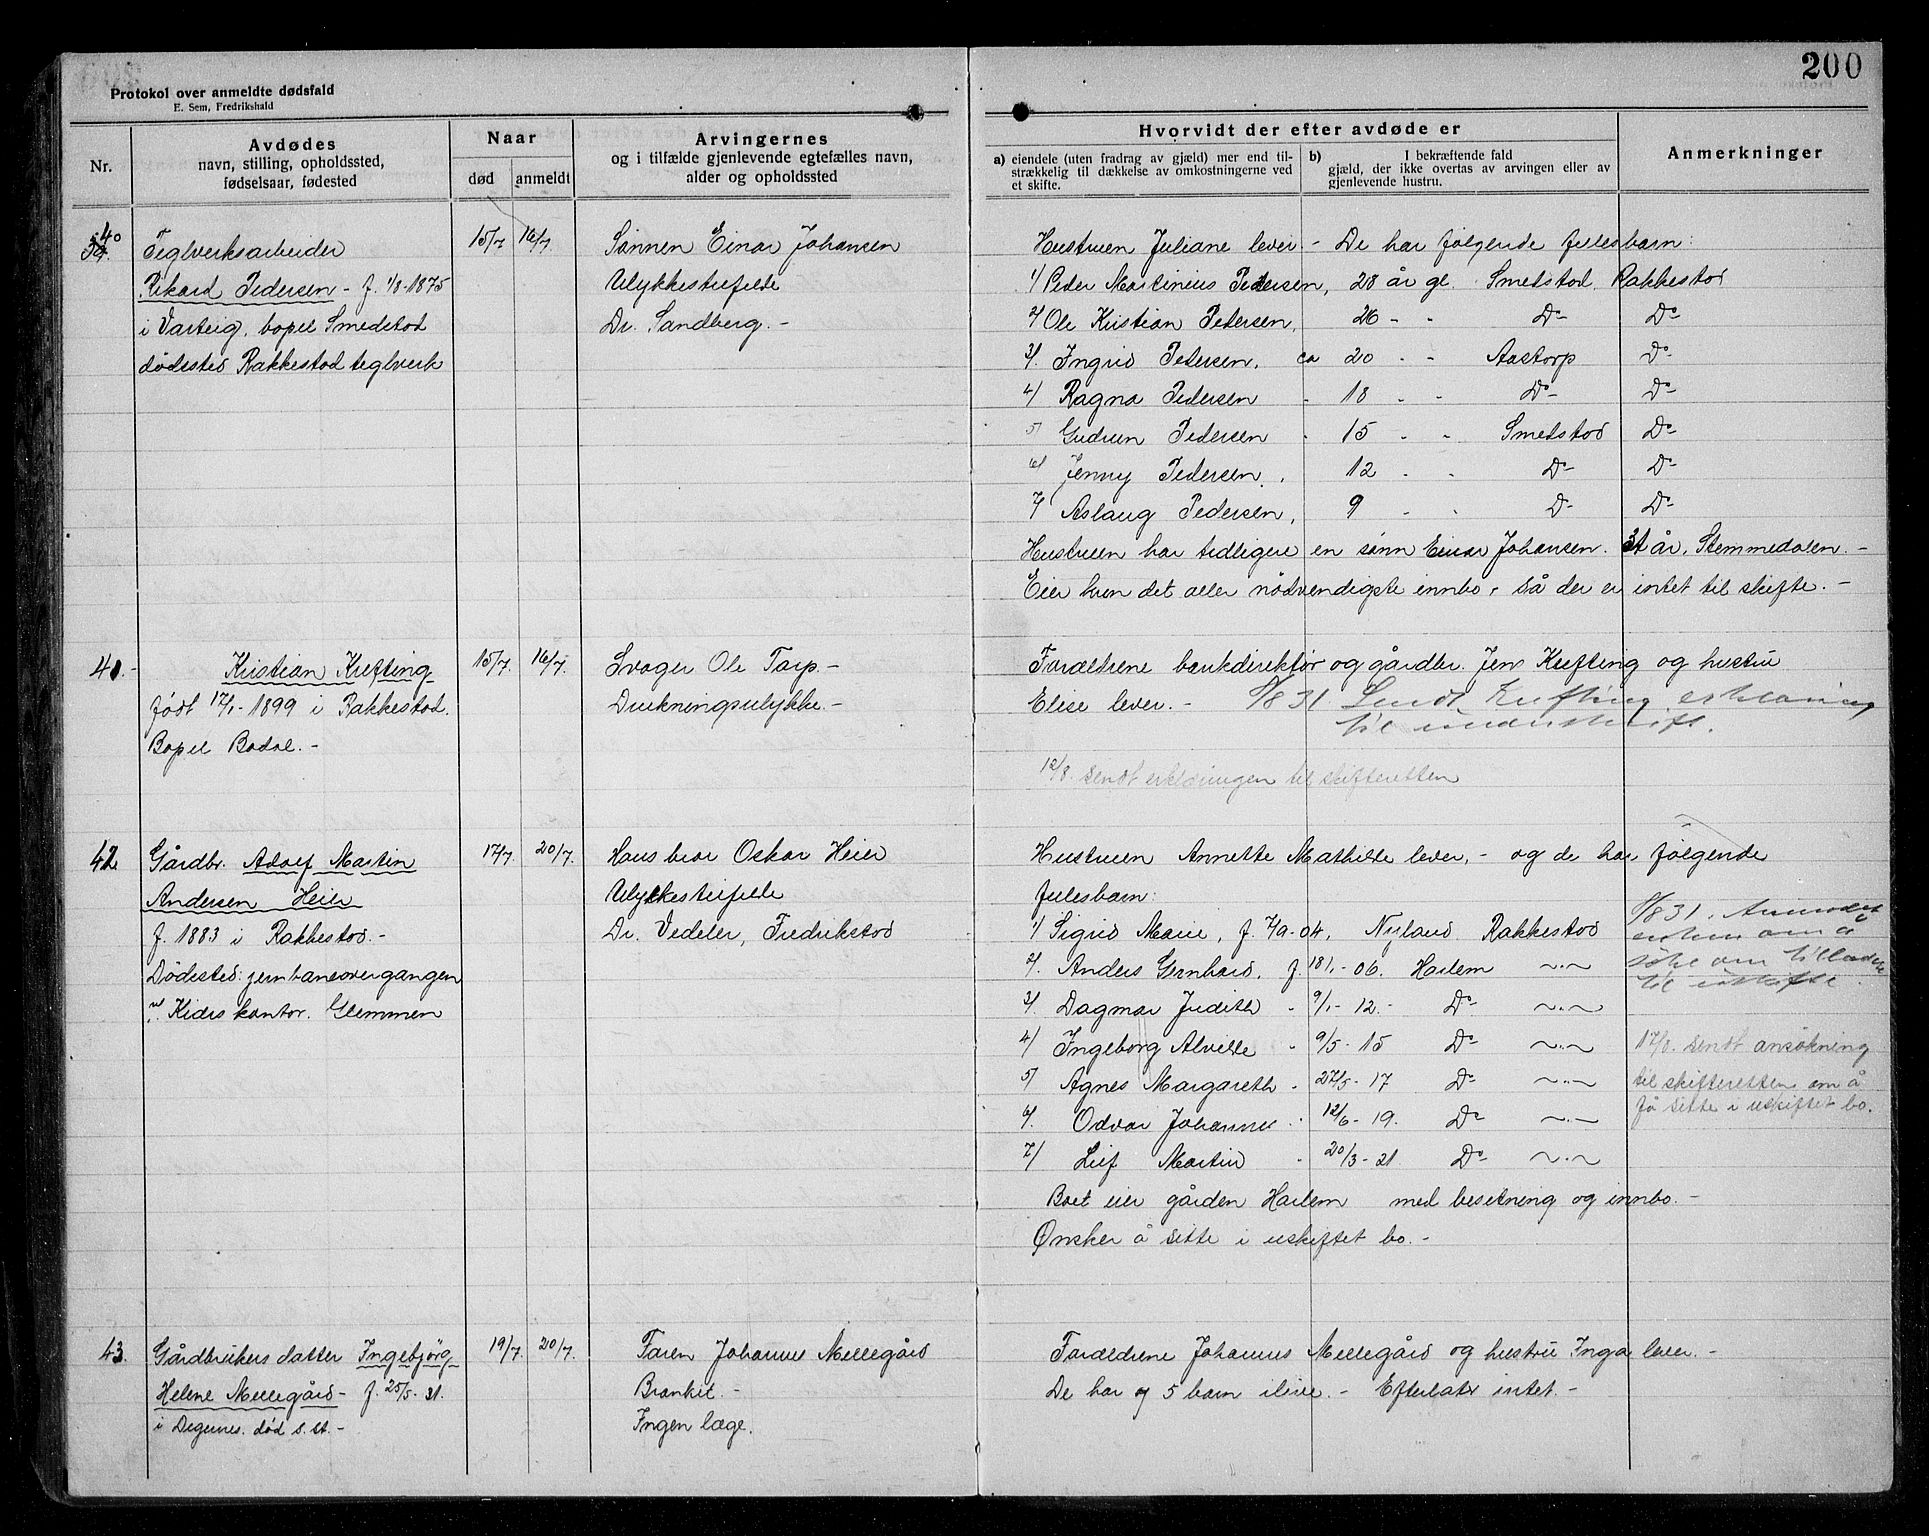 200
Protokol over anmeldte dødsfald
E. Sem, Fredrikshald
Nr.
Avdødes
navn, stilling, opholdssted,
fødselsaar, fødested
Naar
død
anmeldt
Arvingernes
og i tilfælde gjenlevende egtefælles navn,
alder og opholdssted
Hvorvidt der efter avdøde er
a) eiendele (uten fradrag av gjæld) mer end til-
strækkelig til dækkelse av omkostningerne ved
et skifte.
b) I bekræftende fald
gjæld, der ikke overtas av arvingen eller av
gjenlevende hustru.
Anmerkninger
40
Teglverksarbeider
Rikard Pedersen - f. 1/8-1875
i Varteig, bopel Smedstod
dødested Rakkestad teglverk
15/7 16/7
Sønnen Einar Johansen
Ulykkestilfelde
Dr. Sandberg. -
Hustruen Juliane lever. - De har følgende fellesbarn:
1/ Peder Martinius Pedersen, 28 år gl. Smedstod, Rakkestad
2/ Ole Kristian Pedersen, 26 - - Do Do
3/. Ingrid Pedersen, ca 20 - - Aastorp Do
4/ Ragna Pedersen - 18 - - Do Do
5/ Gudrun Pedersen - 15 - - Smedstod Do
6/ Jenny Pedersen, . 12 - - Do Do
7/ Aslaug Pedersen, 9 - - Do Do
Hustruen har tidligere en sønn Einar Johansen. 31 år, Stemmedalen. -
Eier kun det aller nødvendigste innbo, så der er intet til skifte. -
41.
Kristian Krefting
født 17/1-1899 i Rakkestad.
Bopel Bodal. -
15/7. 16/7.
Svoger Ole Torp. -
Drukningsulykke. -
Foreldrene bankdirektør og gårdbr. Jens Krefting og hustru
Elise lever. - 8/8 31 Sendt Krefting erklæring
til underskrift.
12/8. sendt erklæringen til skifteretten
42
Gårdbr. Adolf Martin
Andersen Heier
f. 1883 i Rakkestad. -
Dødested: jernbaneovergangen
v/ Kiærs kontor. Glemmen
17/7 20/7.
Hans bror Oskar Heier
Ulykkestilfelde
Dr. Vedeler, Fredrikstad
Hustruen Annette Mathilde lever, - og de har følgende
fellesbarn:
1/ Sigrid Marie, f. 7/9-04, Nyland Rakkestad
2/. Anders Gernhard, f 18/1-06. Harlem ~.~
3/. Dagmar Judith - 9/1-12. - Do ~.~
4/ Ingeborg Alvilde - 9/5-15 Do ~.~
5/ Agnes Margareth - 27/5-17 Do ~.~
6/. Odvar Johannes - 12/6-19. Do ~.~
7/ Leif Martin - 20/3-21 Do ~.~
Boet eier gården Harlem med besetning og innbo. -
Ønsker å sitte i uskiftet bo. -
8/8 31. Anmodet
enken om å
søke om tilladelse
til uskifte.
17/8. sendt ansøkning
til skifteretten om å
få sitte i uskiftet bo.
43.
Gårdbrukers datter Ingebjørg
Helene Mellegård - f. 25/5-31.
i Degernes. død s. st. -
19/7. 20/7.
Faren Johannes Mellegård
Brankit. -
Ingen læge.
Foreldrene Johannes Mellegård og hustru Inga lever. -
De har og 5 barn ilive. - Efterlater intet. -